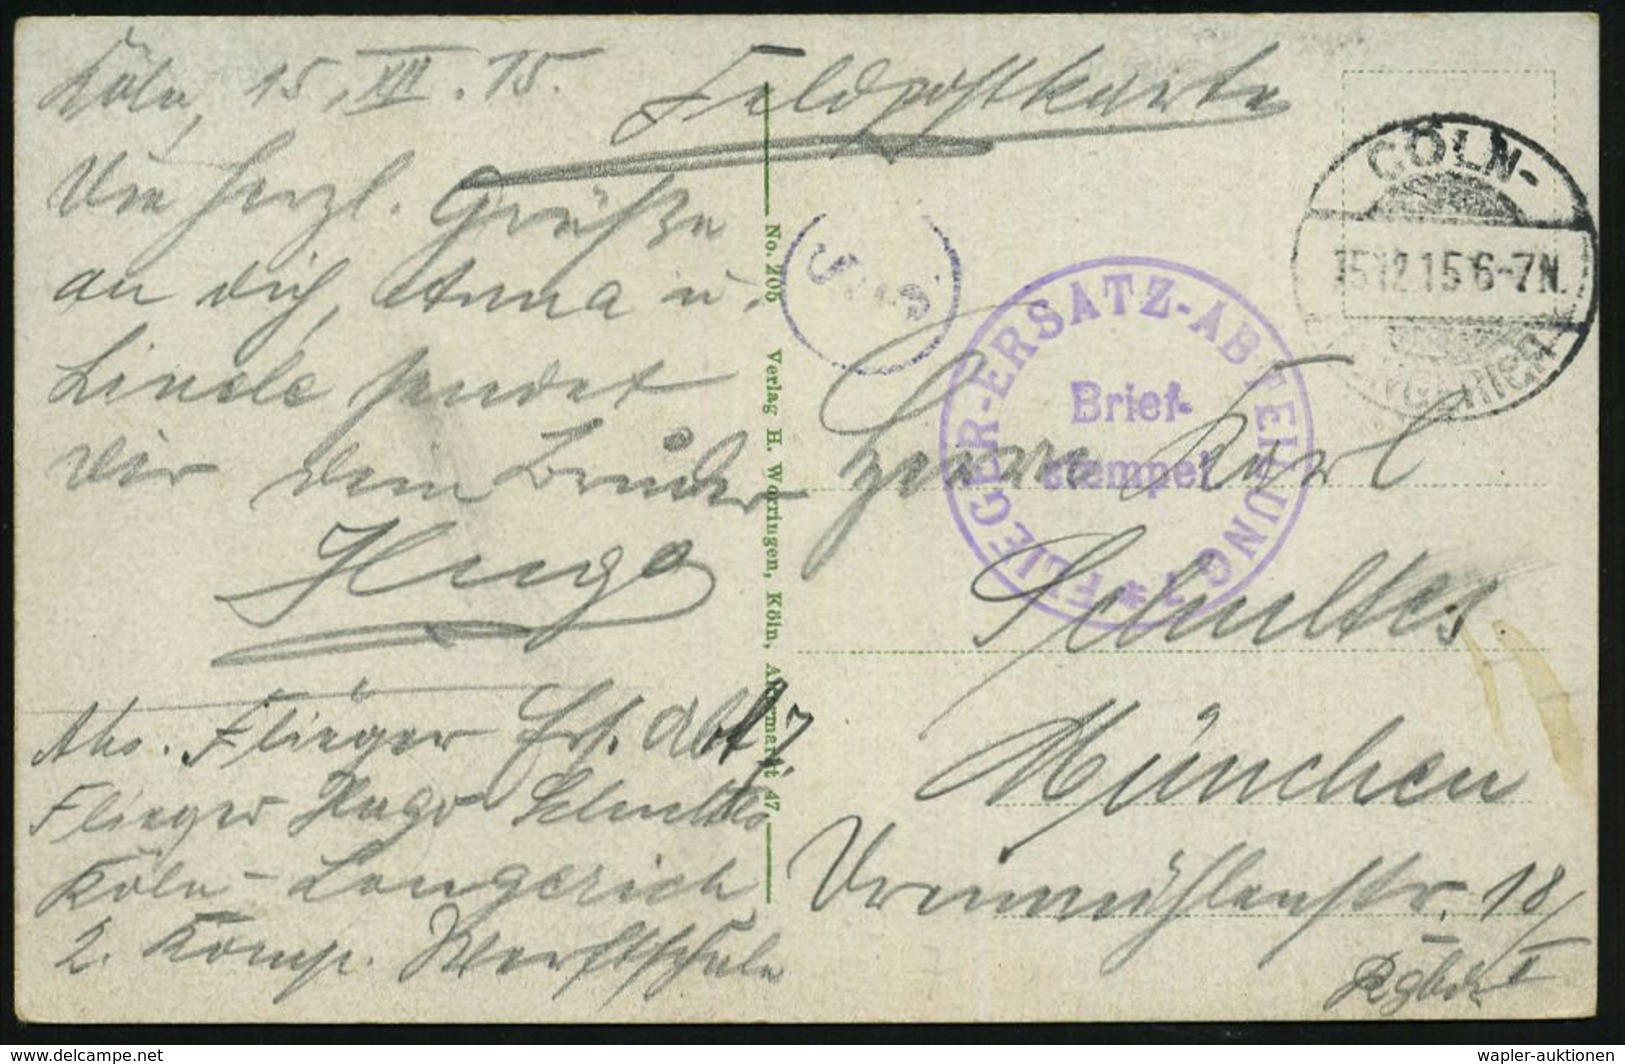 Köln, 15. XII. 15.
Feldpostkarte
Die herzl. Grüße
an dich, Anna u.
sendet
dir dein Bruder
Hugo
Abs. Flieger Ers. Abt. 7
Flieger Hugo Schultes
Köln-Longerich
2. Komp. Werftschule
No. 205 Verlag H. Worringen, Köln, Altermarkt 47
CÖLN-
15.12.15 6-7N.
FLIEGER-ERSATZ-ABTEILUNG 7 *
Brief-
stempel.
Herrn Karl
Schultes
München
Dreimühlenstr. 18/
I
wapler-auktionen
PicClick / delcampe.com